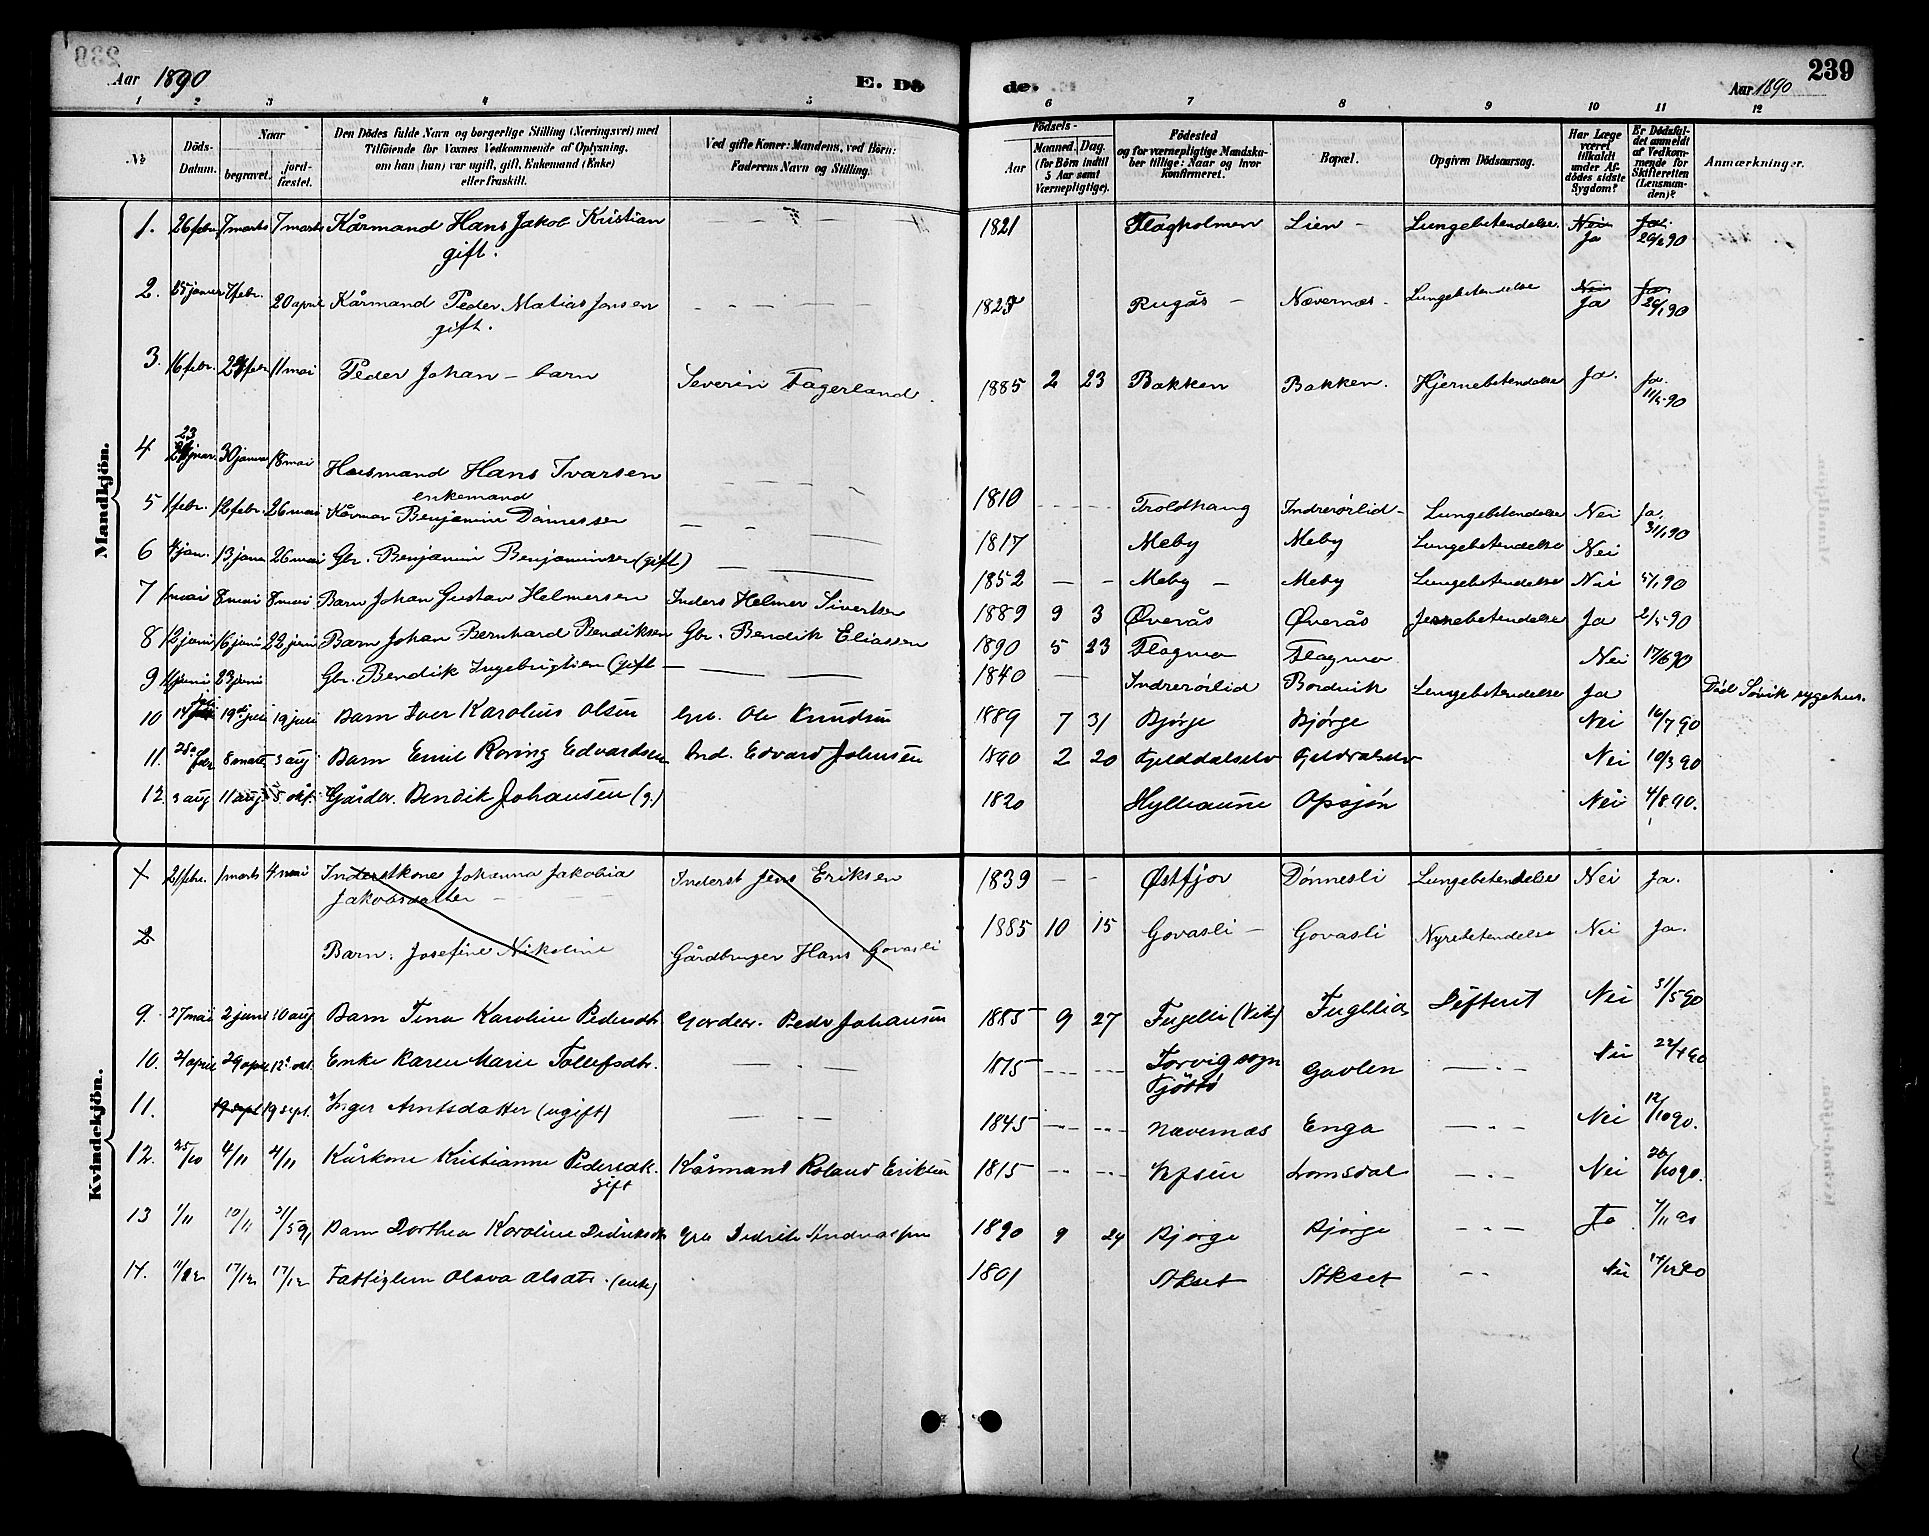 Aar 1890
E. Dö
de.
Aar 1890
239
1 2 3 4 5 6 7 8 9 10 11 12
No
Döds-Datum.
Naar
begravet.
jordfæstet.
Den Dödes fulde Navn og borgerlige Stilling (Næringsvei) med
Tilföiende for Voxnes Vedkommende af Oplysning.
om han (hun) var ugift, gift, Enkemand (Enke)
eller fraskilt.
Ved gifte Koner: Mandens, ved Börn:
Faderens Navn og Stilling.
Födsels-
Aar
Maaned. Dag.
(for Börn indtil
5 Aar samt
Værnepligtige).
Födested
og for værnepligtige Mandskaber tillige: Naar og hvor
konfirmeret.
Bopæl.
Opgiven Dödsaarsag.
Har Læge
været
tilkaldt
under Afdödes sidste
Sygdom?
Er Dödsfaldet anmeldt
af Vedkommende for
Skifteretten
(Lensmanden)?
Anmærkninger.
Mandkjön.
1. 26 febr. 7 marts 7 marts Kårmand Hans Jakob Kristian gift. 1821 Flagholmen Lien Lungebetendelse Nei Ja Ja 20/2 90
2. 25 januar 7 febr. 20 april Kårmand Peder Matias Jensen gift. 1827 Rugås Nævernes Lungebetendelse Nei Ja Ja 26/1 90
3. 16 febr. 24 febr 11 mai Peder Johan - barn Severin Fagerland 1885 2 23 Bakken Bakken. Hjernebetendelse Ja. Ja. 11/5 90
4 23 januar 30 januar 18 mai Husmand Hans Ivarsen enkemand 1810 Troldhaug Indrerörlid Lungebetendelse Nei Ja. 3/1 90
5 1 febr. 12 febr. 26 mai Kårman Benjamin Dönnessen 1817 Meby Meby Lungebetendelse Nei
6 4 jan. 13 janu 26 mai Gbr. Benjamin Benjaminsen (gift) 1852 Meby Meby Lungebetendelse Nei 5/1 90
7 1 mai 8 mai 8 mai Barn Johan Gustav Helmersen Inders Helmer Sivertsen 1889 9 3 Øverås Øverås Jernebetendelse Ja 2/5 90
8 12 juni 16 juni 22 juni Barn Johan Bernhard Bendiksen Gbr. Bendik Eliassen 1890 5 23 Flagmo Flagmo Nei 17/6 90
9 11 juni 23 juni Gbr. Bendik Ingebrigtsen (gift 1840 Indrerörlid Bordvik Lungebetendelse Ja Död Sövik sygehus.
10 14 juli 19de juli 19 juli Barn Iver Karolius Olsen Grb. Ole Knudsen 1889 7 31 Bjørge Bjørge Nei 16/7 90
11. 28 febr 8 marts 3 aug Barn Emil Roving Edvardsen Ind. Edvard Johnsen 1890 2 20 Gelddalselv Geldvalselv Nei 10/3 90
12 3 aug 11 aug 5 okt. Gårdbr. Bendik Johansen (g.) 1820 Hylleaune Opsjön Nei 4/8 90.
Kvindekjön.
1 21 febr. 1 marts 4 mai Inderstkone Johanna Jakobia Jakobsdatter Inderst Jens Eriksen 1839 Østfjor Dönnesli Lungebetendelse Nei Ja.
2 Barn. Josefine Nikoline Gårdbruger Hans Govasli 1885 10 15 Govasli Govasli Nyrebetendelse Nei Ja.
9. 27 mai 2 juni 10 aug Barn Tina Karoline Pedersdtr Gardbr. Peder Johansen 1885 9 27 Fuglli (Vik) Fugllia Difterit Nei 31/5 90
10. 21 april 29 april 12 okt. Enke Karen Marie Tollefsdtr. 1815 Torvig sogn Tjöttö Gavlen Nei 22/4 90
11. 19 sept 19 sept. Inger Arntsdatter (ugift) 1845 Nævernæs Enga Nei 12/10 90.
12. 25/10 4/11 4/11 Kårkone Kristianne Pedersdtr. gift Kårmand Roland Eriksen 1815 Vefsen Lomsdal Nei 26/10 90.
13 1/11 10/11 31/5 91 Barn Dorthea Karoline Didriksdtr Gbr Didrik Andreassen 1890 9 24 Bjørge Bjørge Ja 7/11 90
14. 11/12 17/12 17/12 Fattiglem Olava Olsdtr. (enke) 1801 Akset Akset Nei 17/12 90